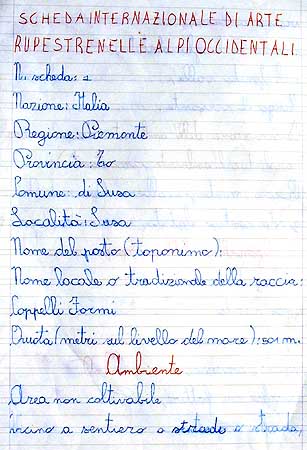 SCHEDA INTERNAZIONALE DI ARTE
RUPESTRE NELLE ALPI OCCIDENTALI.
N. scheda: 1
Nazione: Italia
Regione: Piemonte
Provincia: To
Comune: di Susa
Località: Susa
Nome del posto (toponimo):
Nome locale o tradizionale della roccia:
Coppelli Formi
Quota (metri sul livello del mare): 501 m.
Ambiente
Area non coltivabile
vicino a sentiero o strade o strada,